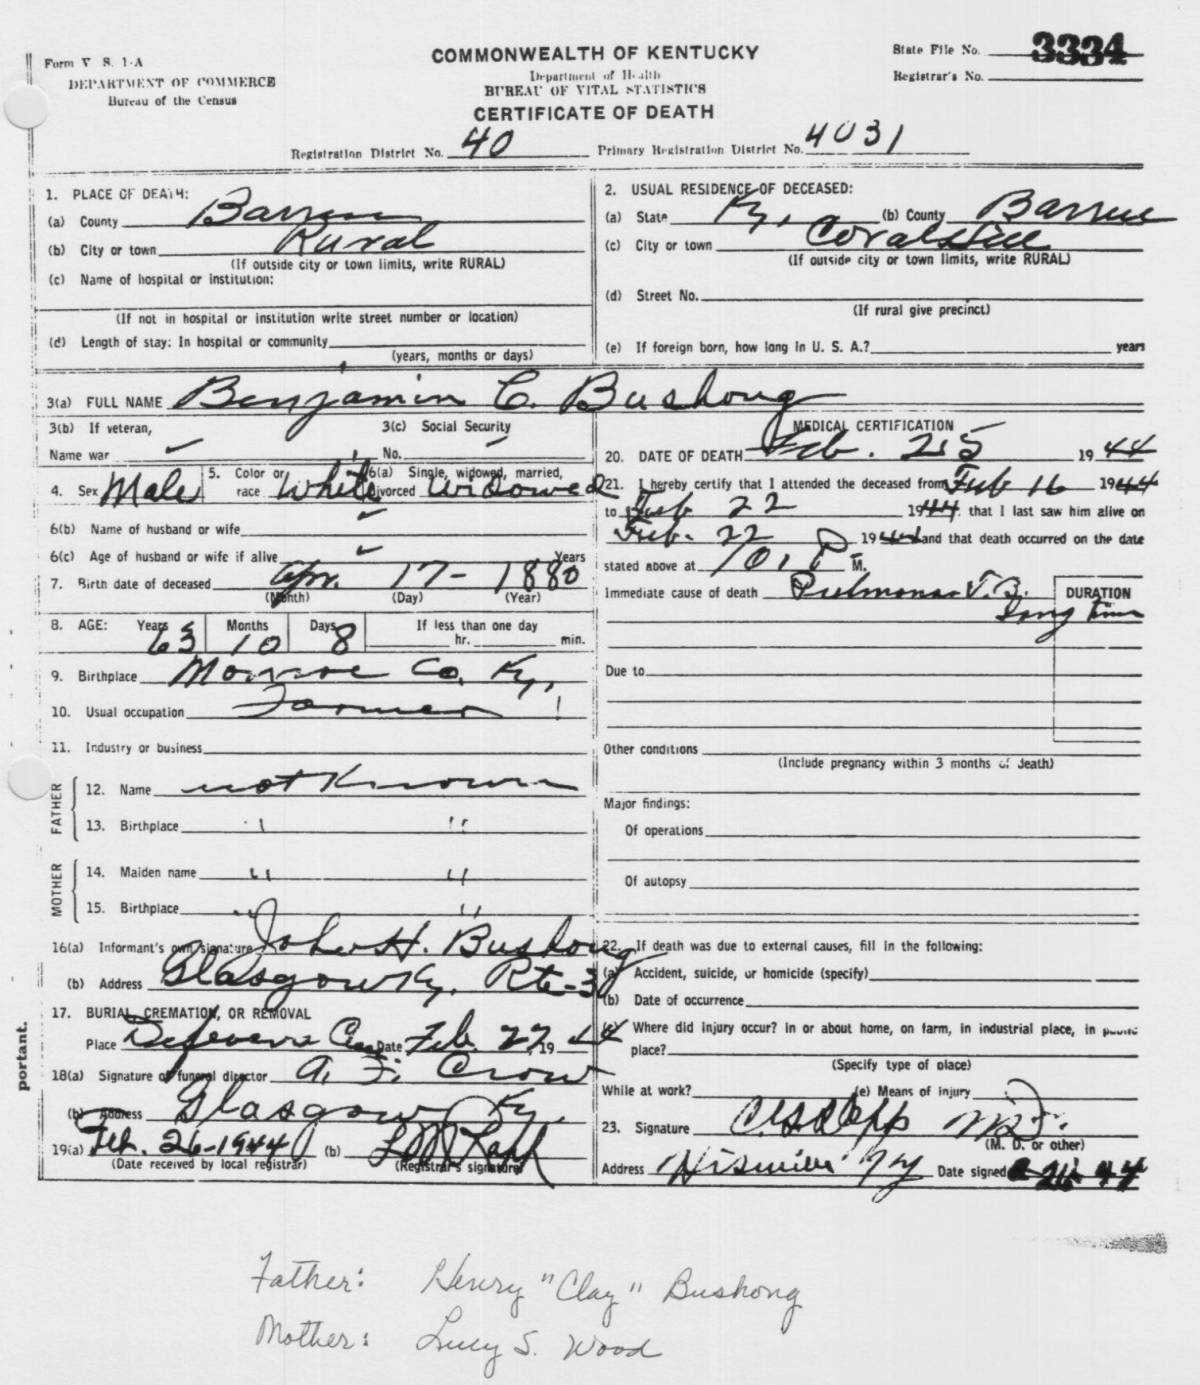 Form V S. 1-A
DEPARTMENT OF COMMERCE
Bureau of the Census
COMMONWEALTH OF KENTUCKY
Department of Health
BUREAU OF VITAL STATISTICS
CERTIFICATE OF DEATH
State File No. 3334
Registrar's No.
Registration District No. 40 Primary Registration District No. 4031
1. PLACE OF DEATH:
(a) County Barren
(b) City or town Rural
(If outside city or town limits, write RURAL)
(c) Name of hospital or institution:
(If not in hospital or institution write street number or location)
(d) Length of stay: In hospital or community
(years, months or days)
2. USUAL RESIDENCE OF DECEASED:
(a) State Ky, (b) County Barren
(c) City or town Coral Hill
(If outside city or town limits, write RURAL)
(d) Street No.
(If rural give precinct)
(e) If foreign born, how long in U. S. A.? years
3(a) FULL NAME Benjamin C. Bushong
3(b) If veteran,
Name war
3(c) Social Security
No.
4. Sex Male 5. Color or race White 6(a) Single, widowed, married, divorced Widowed
6(b) Name of husband or wife
6(c) Age of husband or wife if alive Years
7. Birth date of deceased Apr. 17- 1880
(Month) (Day) (Year)
8. AGE: Years 63 Months 10 Days 8 If less than one day
hr. min.
9. Birthplace Monroe Co. Ky,
10. Usual occupation Farmer
11. Industry or business
FATHER
12. Name not Known
13. Birthplace " "
MOTHER
14. Maiden name " "
15. Birthplace " "
16(a) Informant's own signature John H. Bushong
(b) Address Glasgow Ky, Rte-3
17. BURIAL, CREMATION, OR REMOVAL
Place Date Feb. 27, 1944
18(a) Signature of funeral director A. F. Crow
(b) Address Glasgow Ky,
19(a) Feb. 26-1944 (b)
(Date received by local registrar) (Registrar's signature)
MEDICAL CERTIFICATION
20. DATE OF DEATH Feb. 25 1944
21. I hereby certify that I attended the deceased from Feb 16 1944
to Feb 22 1944 that I last saw him alive on
Feb. 22 1944 and that death occurred on the date
stated above at 10 P M.
Immediate cause of death Pulmonar T.B. DURATION
long time
Due to
Other conditions
(Include pregnancy within 3 months of death)
Major findings:
Of operations
Of autopsy
22. If death was due to external causes, fill in the following:
(a) Accident, suicide, or homicide (specify)
(b) Date of occurrence
(c) Where did injury occur? In or about home, on farm, in industrial place, in public
place?
(Specify type of place)
While at work? (e) Means of injury
23. Signature MD.
(M. D. or other)
Address Hiseville Ky Date signed 2 26 44
portant.
Father: Henry "Clay" Bushong
Mother: Lucy S. Wood